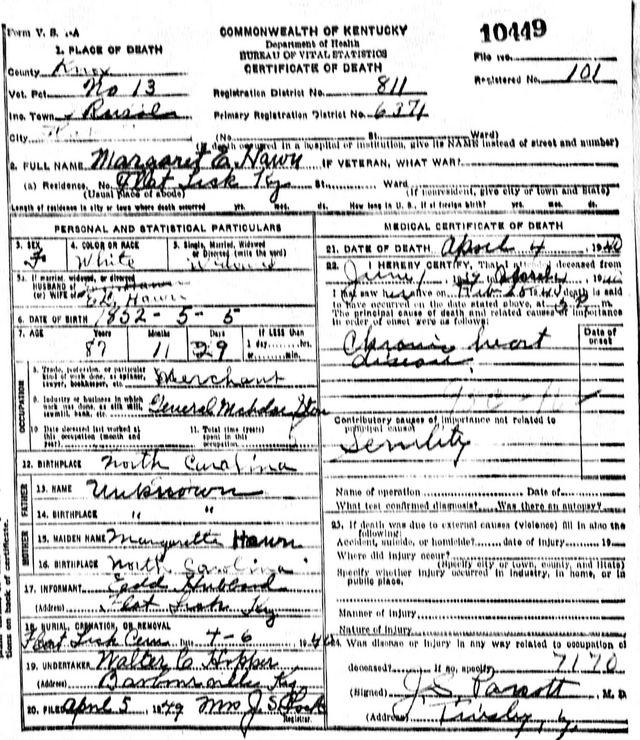 Form V. S.
COMMONWEALTH OF KENTUCKY
Department of Health
BUREAU OF VITAL STATISTICS
CERTIFICATE OF DEATH
10449
File No.
Registered No. 101
1. PLACE OF DEATH
County Knox
Vot. Pct No 13
Inc. Town Rural
City
Registration District No. 811
Primary Registration District No. 6371
(No. St. Ward)
death occurred in a hospital or institution, give its NAME instead of street and number)
2. FULL NAME Margaret E. Hawn IF VETERAN, WHAT WAR?
(a) Residence. No. Flat Lick Ky St. Ward
(Usual place of abode) (If nonresident, give city or town and State)
Length of residence in city or town where death occurred yrs. mos. ds. How long in U. S., if of foreign birth? yrs. mos. ds.
PERSONAL AND STATISTICAL PARTICULARS
3. SEX F
4. COLOR OR RACE White
5. Single, Married, Widowed or Divorced (write the word)
5a. If married, widowed, or divorced
HUSBAND OF
(or) WIFE of Hawn
6. DATE OF BIRTH 1852-5-5
7. AGE Years Months Days IF LESS than
87 11 29 1 day hrs.
or min.
OCCUPATION
8. Trade, profession, or particular kind of work done, as spinner, sawyer, bookkeeper, etc. Merchant
9. Industry or business in which work was done, as silk mill, sawmill, bank, etc. General
10 Date deceased last worked at this occupation (month and year)
11. Total time (years) spent in this occupation
12. BIRTHPLACE North Carolina
FATHER
13. NAME Unknown
14. BIRTHPLACE " "
MOTHER
15. MAIDEN NAME Hawn
16. BIRTHPLACE North Carolina
17. INFORMANT Edd Hubbard
(Address) Flat Lick Ky
18. BURIAL, CREMATION, OR REMOVAL
Flat Lick Cem Date 4-6 1940
19. UNDERTAKER Walter C Hopper
(Address) Barbourville Ky
20. FILED April 5 Mrs J S
Registrar.
MEDICAL CERTIFICATE OF DEATH
21. DATE OF DEATH April 4 1940
22. I HEREBY CERTIFY, That I attended deceased from
death is said
to have occurred on the date stated above, at m.
The principal cause of death and related causes of importance in order of onset were as follows:
Date of onset
Chronic heart
disease
Contributory causes of importance not related to principal cause:
Senility
Name of operation Date of
What test confirmed diagnosis? Was there an autopsy?
23. If death was due to external causes (violence) fill in also the following:
Accident, suicide, or homicide? date of injury 19
Where did injury occur?
(Specify city or town, county, and State)
Specify whether injury occurred in industry, in home, or in public place.
Manner of injury
Nature of injury
24. Was disease or injury in any way related to occupation of
deceased? If so, specify
7170
(Signed) J.S. Parrott M. D.
(Address)
tion on back of certificate.